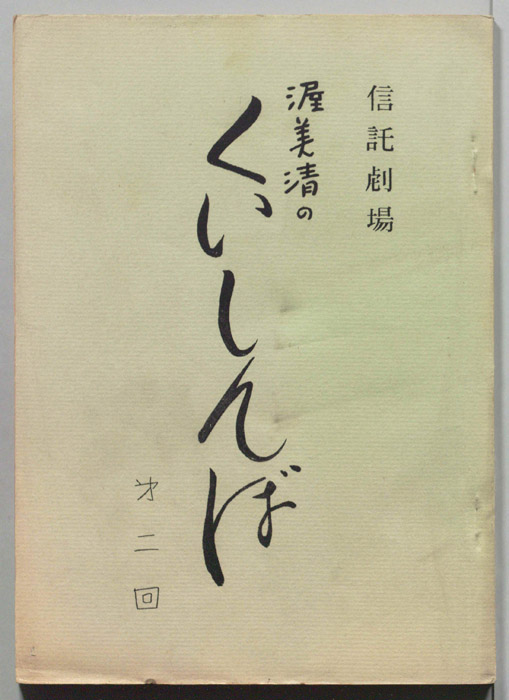 信託劇場
渥美清の
くいしんぼ
才二回